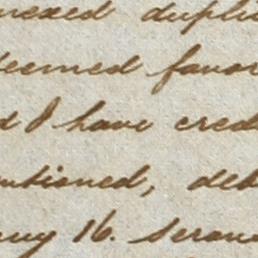 nexed dupli
eemed favor
d I have cred
ntioned, deb
16.